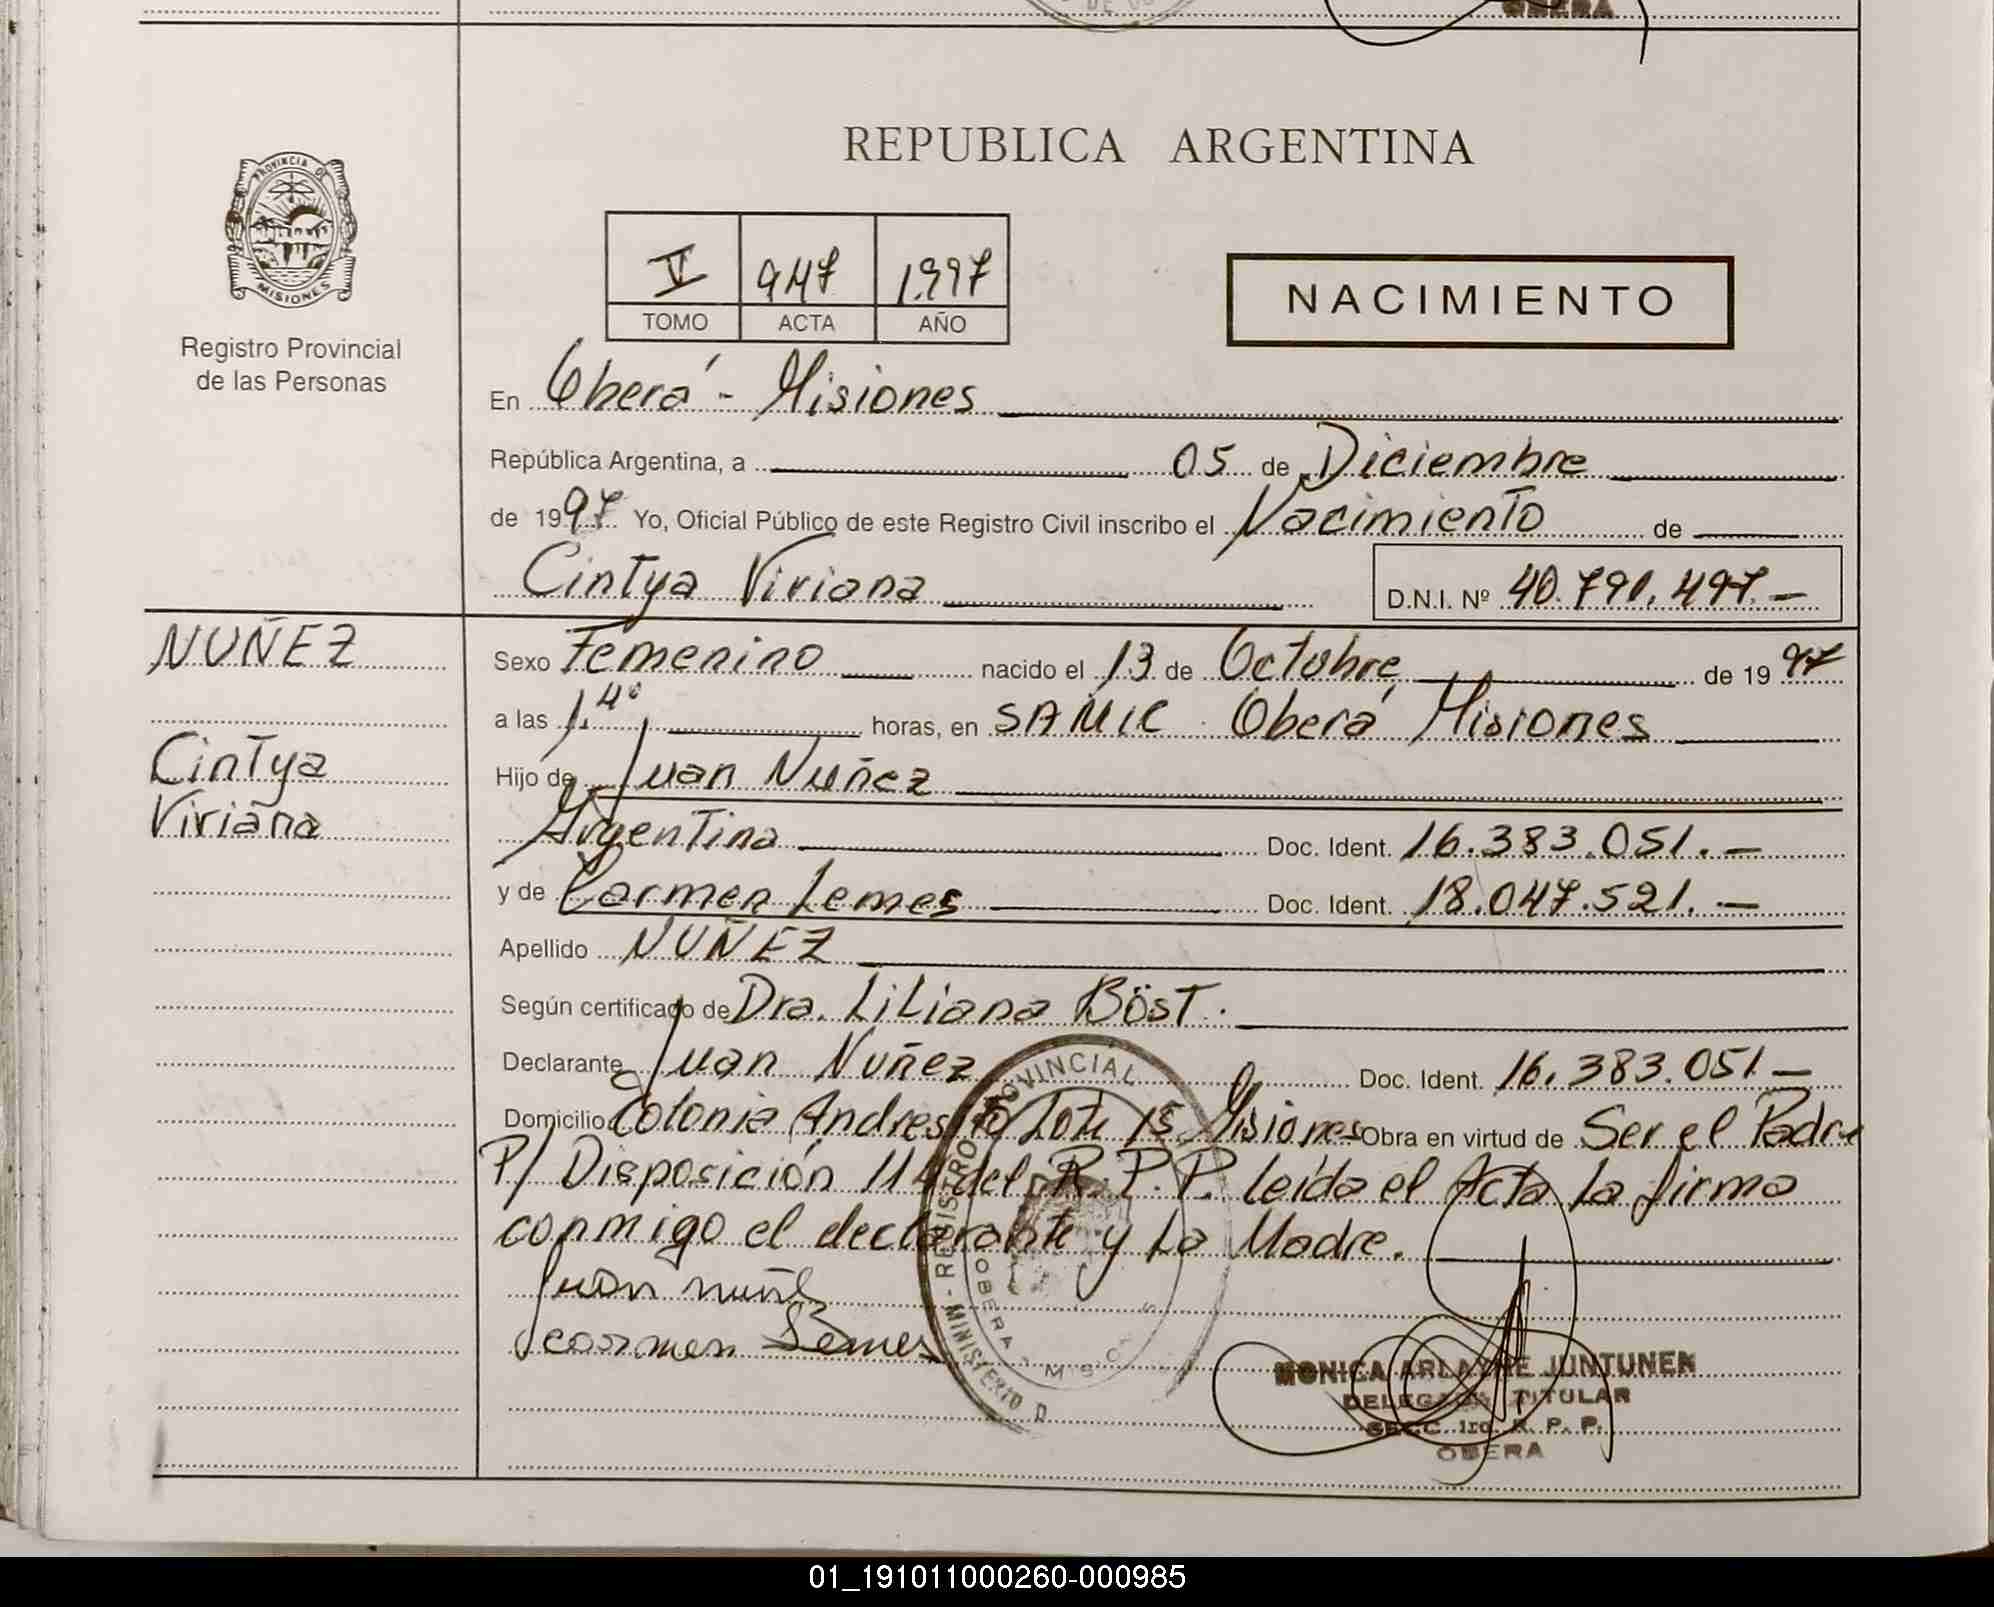 DE OB
OBERA
REPUBLICA ARGENTINA
PROVINCIA DE
MISIONES
Registro Provincial
de las Personas
V 947 1.997
TOMO ACTA AÑO
NACIMIENTO
En Oberá - Misiones
República Argentina, a 05 de Diciembre
de 1997 Yo, Oficial Público de este Registro Civil inscribo el Nacimiento de
Cintya Viviana D.N.I. Nº 40.790.497.-
NUÑEZ
Cintya
Viviana
Sexo Femenino nacido el 13 de Octubre de 1997
a las 1,40 horas, en SAMIC Oberá Misiones
Hijo de Juan Nuñez
Argentina Doc. Ident. 16.383.051.-
y de Carmen Lemes Doc. Ident. 18.047.521.-
Apellido NUÑEZ
Según certificado de Dra. Liliana Böst.
Declarante Juan Nuñez Doc. Ident. 16.383.051-
Domicilio Colonia Andresito Lote 15 Misiones Obra en virtud de Ser el Padre
P/ Disposición 114 del R.P.P. leída el Acta la firma
conmigo el declarante y la Madre.
Juan nuñe
carmen Lemes
REGISTRO PROVINCIAL
- MINISTERIO D
OBERA
MONICA ARLAYNE JUNTUNEN
DELEGADA TITULAR
SECC. 1ra. R. P. P.
OBERA
01_191011000260-000985